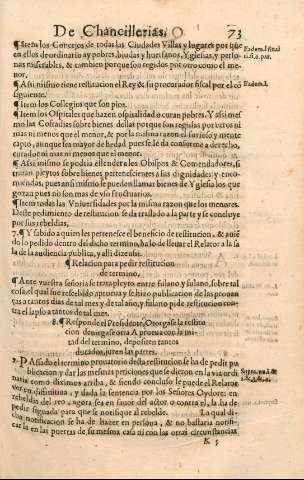 De Chancillerias. 73
¶ Item los Concejos de todas las Ciudades Villas y lugares por que
en ellos de ordinario ay pobres, biudas y huerfanos, Yglesias, y perso
nas miserables, & tambien porque son regidos por otro como el me-
nor.
¶ Assi mismo tiene restitucion el Rey & su procurador fiscal por el co
siguiente.
¶ Item los Collegios que son pios.
¶ Item los Ospitales que hazen ospitalidad o curan pobres. Y assi mes
mo las Cofradias sobre bienes dellas porque son regidas por otros ni
mas ni menos que el menor, & por la misma razon el furioso y mente
capto, aunque sea mayor de hedad pues se le da conforme a derecho,
curador ni mas ni menos que el menor.
¶ Assi mismo se podria estender a los Obispos & Comendadores, si
tratan pleytos sobre bienes pertenescientes a sus dignidades: y enco-
miendas, pues assi mismo se pueden llamar bienes de Yglesia los que
gozan pues no son mas de vso fructuarios.
¶ Item todas las Vniuersidades por la misma razon que los menores.
Deste pedimiento de restitucion se da traslado a la parte y se concluye
por sus rebeldias.
7. ¶ Y sabido a quien les pertenesce el beneficio de restitucion, & auie
do lo pedido dentro del dicho termino, ha lo de lleuar el Relator a la sa
la de la audiencia publica, y alli dize assi.
¶ Relacion para pedir restitucion
de termino.
¶ Ante vuestra señoria se trata pleyto entre fulano y fulano, sobre tal
cosa el qual fue rescebido a prueua & hizo publicacion de las prouan
ças a tantos dias de tal mes y de tal año, y fulano pide restitucion con-
tra el lapso a tantos de tal mes.
8. ¶ Responde el Presidente, Otorgase la restitu
cion denegase otra A prouar con la mi
tad del termino, depositen tantos
ducados, juren las partes.
9. PAssado el termino prouatorio desta restitucion se ha de pedir pu
blicacion y dar las mesmas peticiones que se dieron en la via ordi
naria como diximos arriba, & siendo concluso le puede el Relator
ver en difinitiua, y dada la sentencia por los Señores Oydores: en
rebeldia del reo, agora sea en fauor del actor o contra el, la ha de
pedir signada para que se notifique al rebelde. La qual di-
cha notificacion se ha de hazer en persona, & no bastaria notifi-
car la en las puertas de su mesma casa ni con las otras circunstancias
K 5